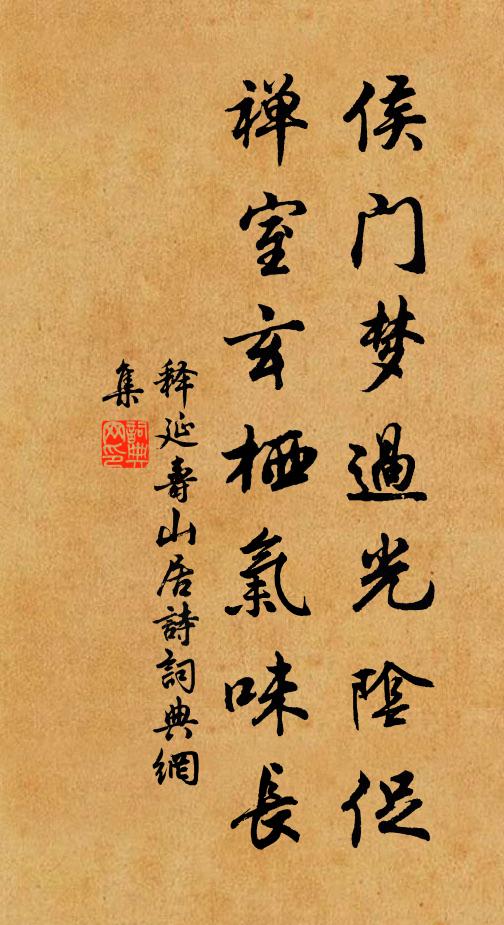 侯门梦過光陰促
禅室玄栖氣味長
释延壽山居詩詞典網
集
詞典網印